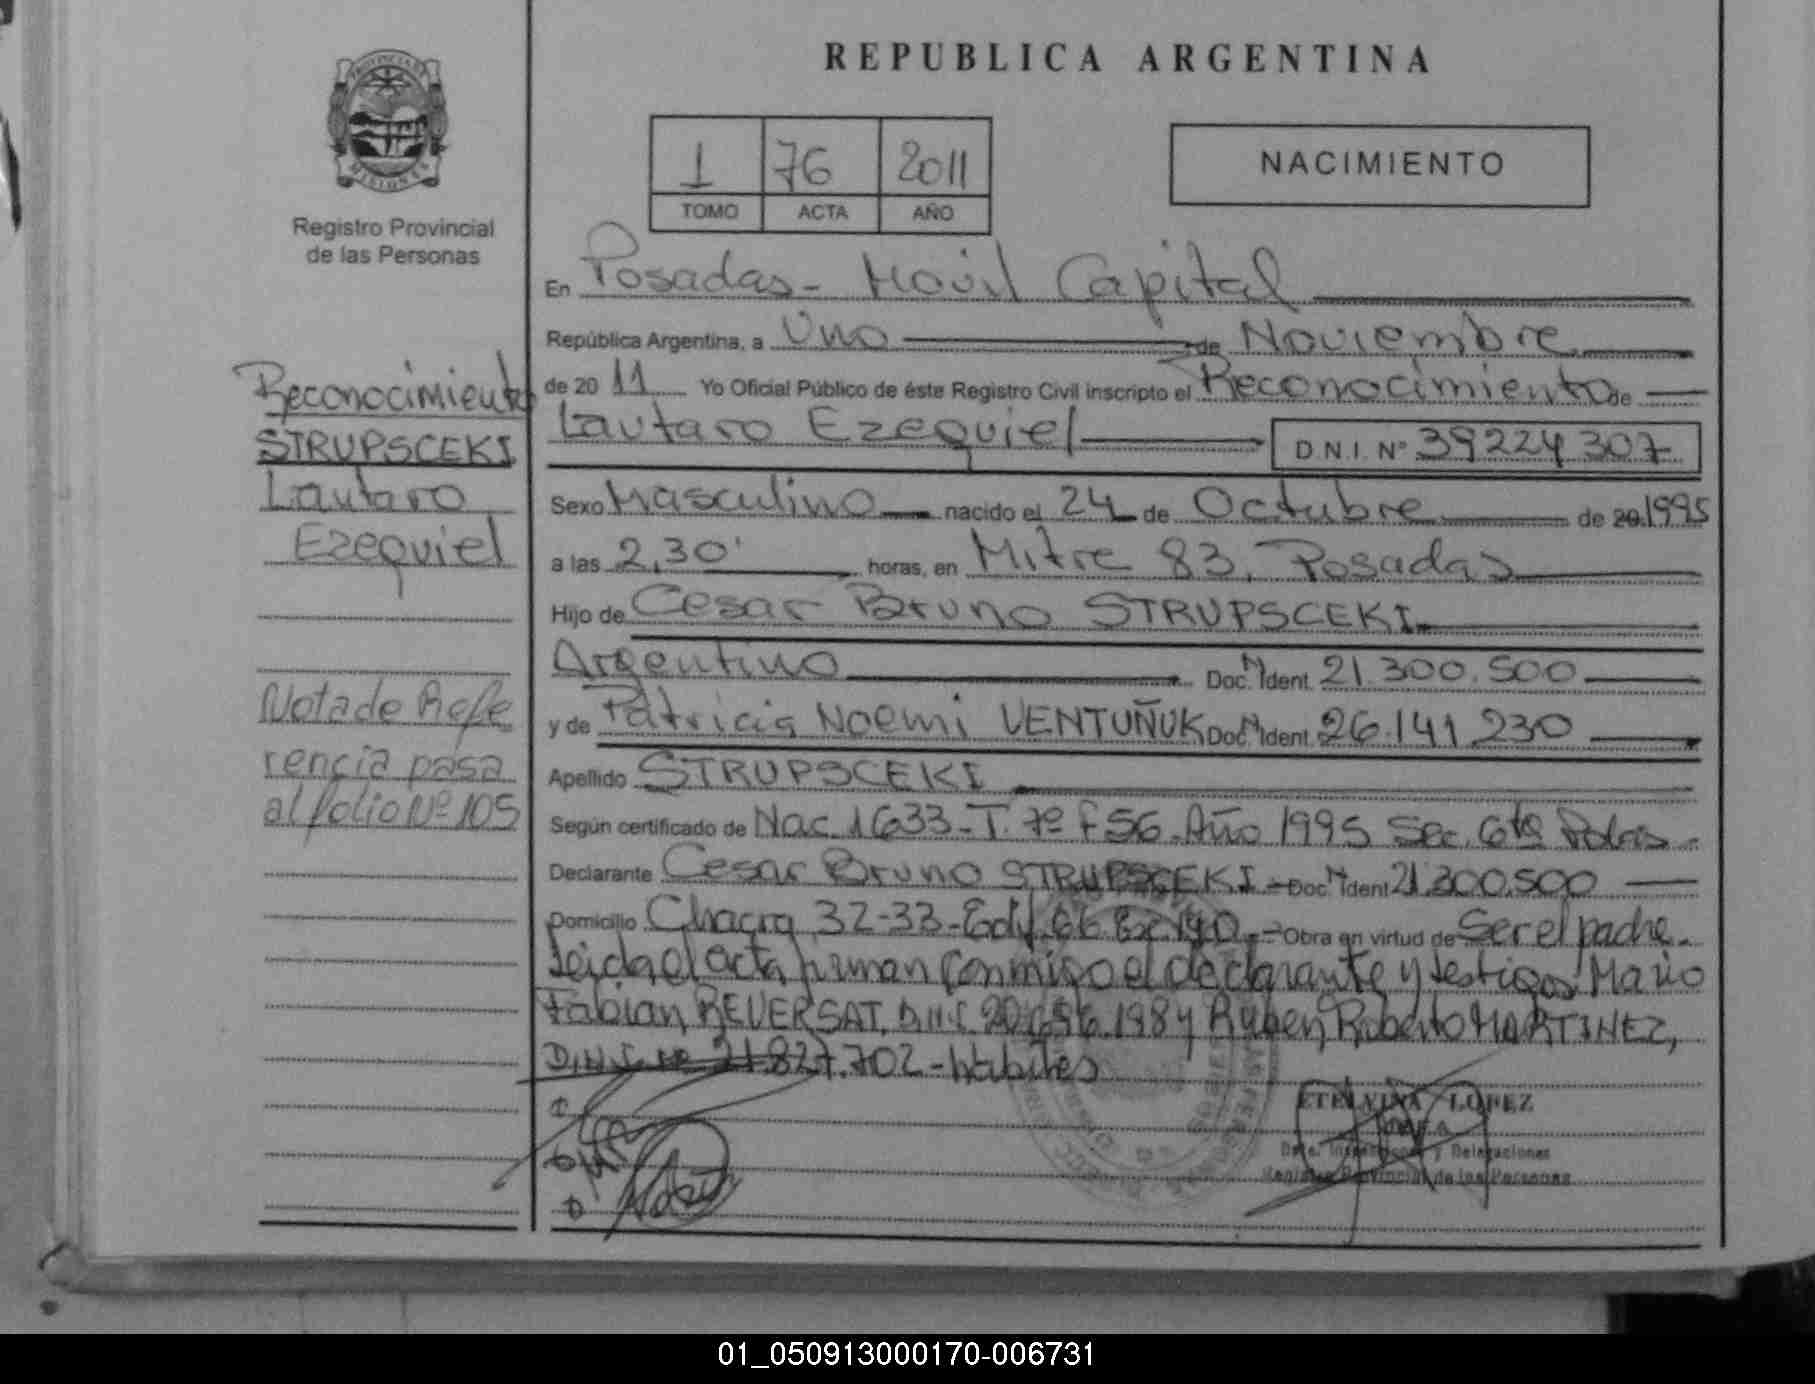 REPUBLICA ARGENTINA
PROVINCIA DE
MISIONES
Registro Provincial
de las Personas
1 76 2011
TOMO ACTA AÑO
NACIMIENTO
En Posadas - Movil Capital
República Argentina, a Uno de Noviembre
de 20 11 Yo Oficial Público de éste Registro Civil inscripto el Reconocimiento de
Lautaro Ezequiel D.N.I. Nº 39224307
Sexo Masculino nacido el 24 de Octubre de 20 1995
a las 2,30' horas, en Mitre 83. Posadas
Hijo de Cesar Bruno STRUPSCEKI
Argentino Doc. Ident. 21.300.500
y de Patricia Noemi VENTUÑUK Doc. Ident. 26.141.230
Apellido STRUPSCEKI
Según certificado de Nac. 1633 - T. 7º F 56 - Año 1995 Sec. 6ta Pdas -
Declarante Cesar Bruno STRUPSCEKI - Doc. Ident 21.300.500
Domicilio Chacra 32-33 - Edif. 66 - Obra en virtud de Ser el padre -
Leida el acta firman conmigo el declarante y testigos: Mario
Fabian REVERSAT, D.N.I. y Ruben Roberto MARTINEZ,
D.N.I. Nº 21.827.702 - hábiles
ETELVINA LOPEZ
Dpto. Inspecciones y Delegaciones
Registro Provincial de las Personas
Reconocimiento
STRUPSCEKI
Lautaro
Ezequiel
Nota de Refe
rencia pasa
al folio Nº 105
01_050913000170-006731